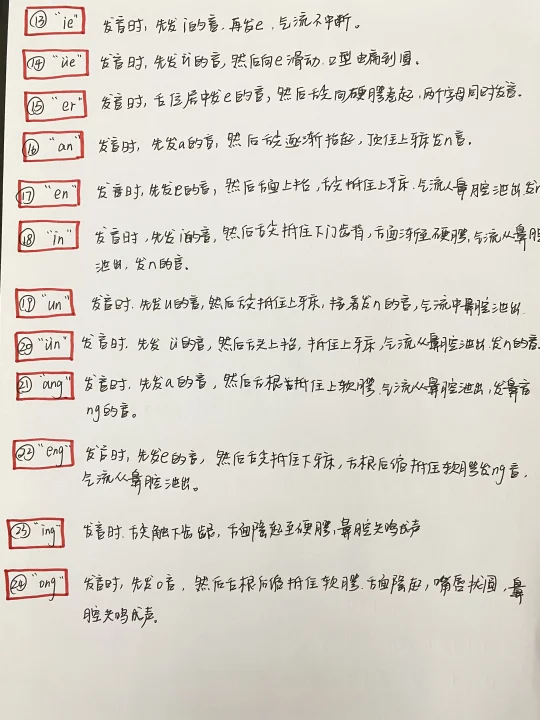 ⑬ "ie" 发音时，先发i的音，再发e，气流不中断。
⑭ "üe" 发音时，先发ü的音，然后向e滑动，口型由扁到圆。
⑮ "er" 发音时，舌位居中发e的音，然后舌尖向硬腭卷起，两个字母同时发音。
⑯ "an" 发音时，先发a的音，然后舌尖逐渐抬起，顶住上牙床发n音。
⑰ "en" 发音时，先发e的音，然后舌面上抬，舌尖抵住上牙床，气流从鼻腔泄出，发n
⑱ "in" 发音时，先发i的音，然后舌尖抵住下门齿背，舌面渐至硬腭，气流从鼻腔
泄出，发n的音。
⑲ "un" 发音时，先发u的音，然后舌尖抵住上牙床，接着发n的音，气流由鼻腔泄出
⑳ "ün" 发音时，先发ü的音，然后舌尖上抬，抵住上牙床，气流从鼻腔泄出发n的音
㉑ "ang" 发音时，先发a的音，然后舌根抵住上软腭，气流从鼻腔泄出，发鼻音
ng的音。
㉒ "eng" 发音时，先发e的音，然后舌尖抵住下牙床，舌根后缩抵住软腭发ng音，
气流从鼻腔泄出。
㉓ "ing" 发音时，舌尖触下齿龈，舌面隆起至硬腭，鼻腔共鸣成声
㉔ "ong" 发音时，先发o音，然后舌根后缩抵住软腭，舌面隆起，嘴唇拢圆，鼻
腔共鸣成声。